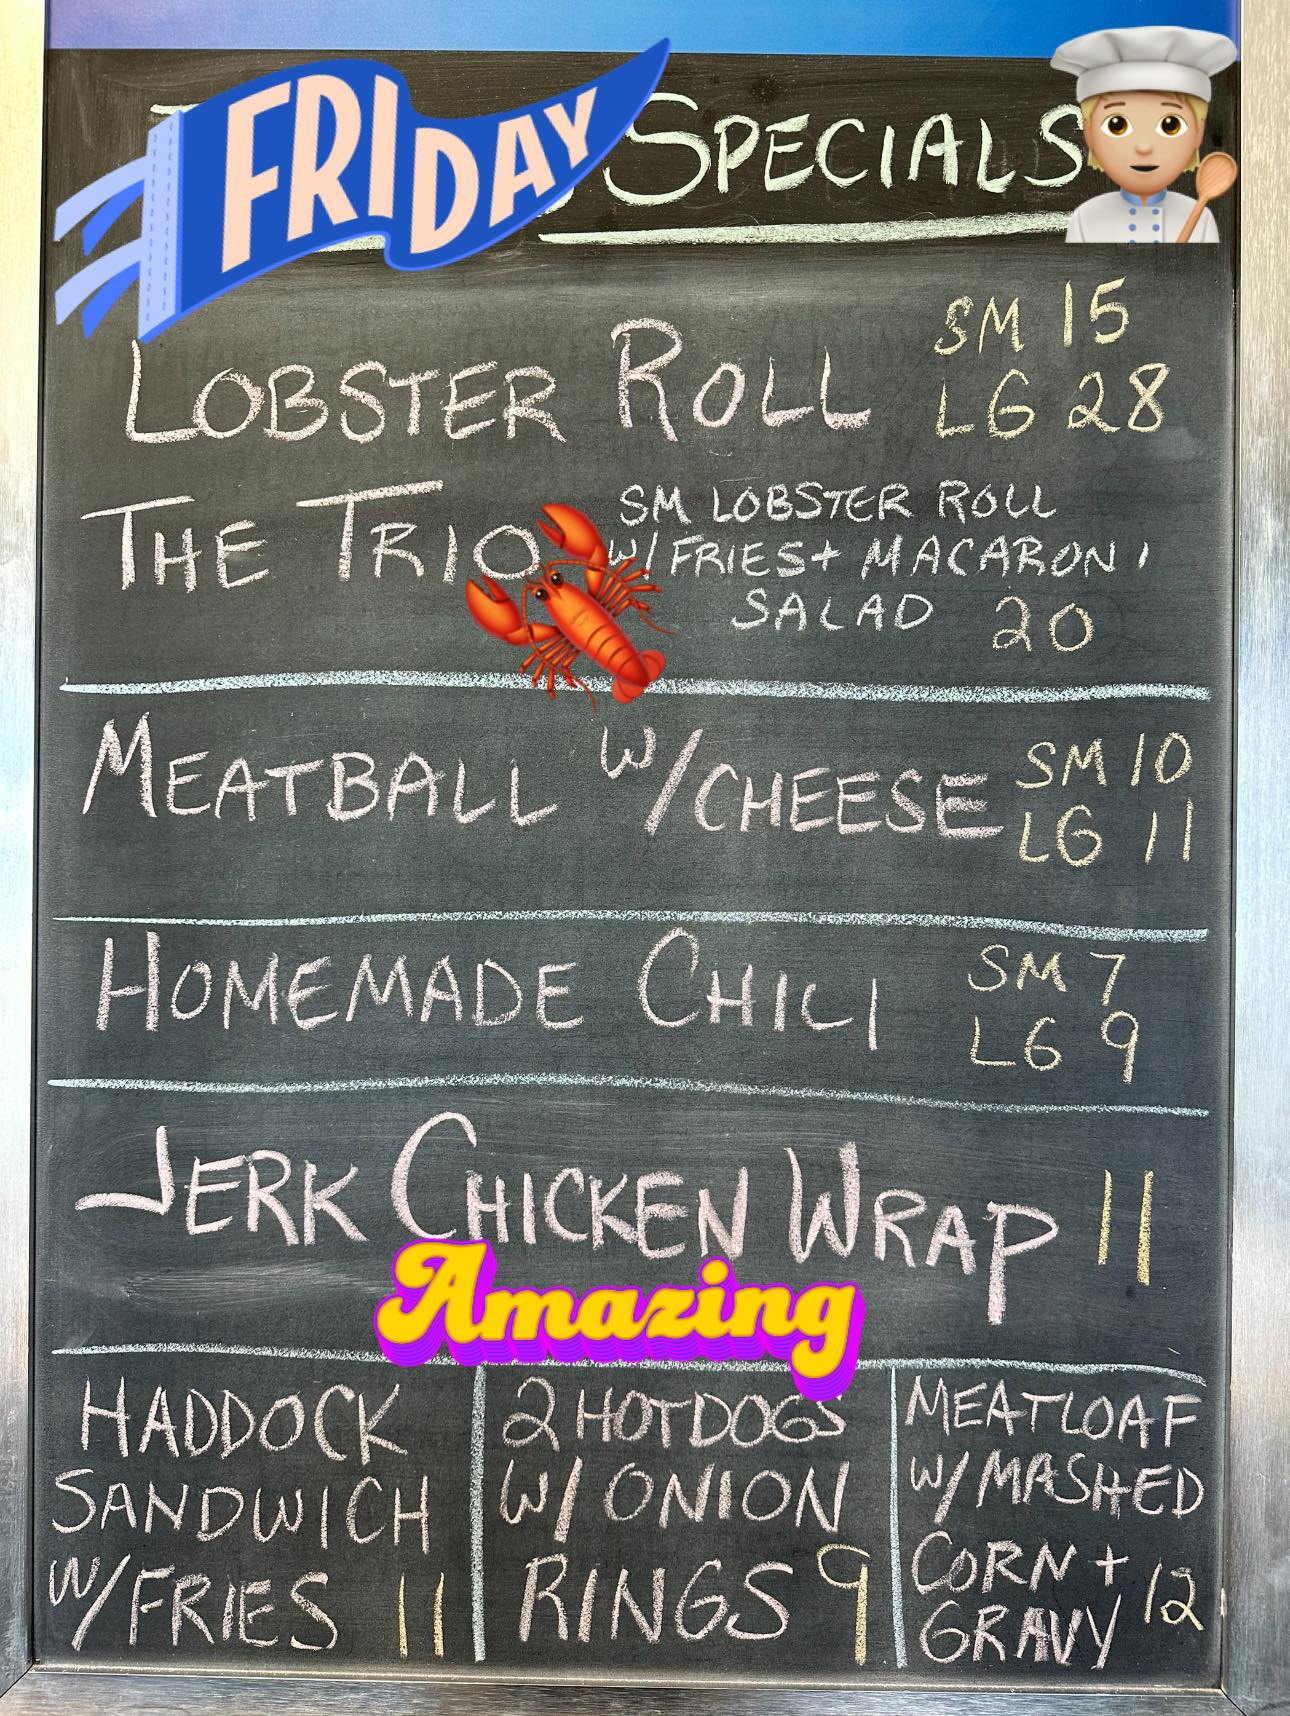 FRIDAY SPECIALS
LOBSTER ROLL SM 15
LG 28
THE TRIO SM LOBSTER ROLL
W/FRIES+ MACARONI
SALAD 20
MEATBALL W/CHEESE SM 10
LG 11
HOMEMADE CHILI SM 7
LG 9
JERK CHICKEN WRAP 11
Amazing
HADDOCK
SANDWICH
W/FRIES 11
2 HOTDOGS
W/ONION
RINGS 9
MEATLOAF
W/MASHED
CORN +
GRAVY 12